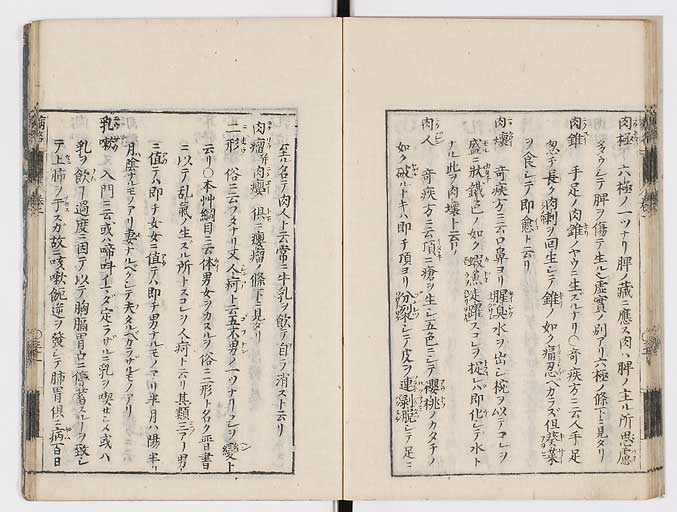 肉極 六極ノ一ツナリ脾ノ藏ニ應ス肉ハ脾ノ主ル所思慮
多クシテ脾ヲ傷テ生ル乄虚實ノ別アリ六極ノ條下ニ見タリ
肉錐 手足ノ肉錐ノヤウニ生ズルナリ〇奇疾方ニ云人手足
忽チ長ク肉刺ヲ回生シテ錐ノ如ク痛忍ベカラズ但葵菜
ヲ食シテ即愈ト云リ
肉壞 奇疾方ニ云口鼻ヨリ腥臭水ヲ出シ椀ヲ以テコレヲ
盛ニ狀鐵色ノ如ク蝦魚走躍スコレヲ捉レバ即化シテ水ト
ナル此ヲ肉壞ト云リ
肉人 奇疾方ニ云項ニ瘡ヲ生シ五色ニシテ櫻桃ノカタチノ
如ク破ルトキハ即チ項ヨリ分裂シテ皮ヲ連剝脱シテ足ニ
至ル名テ肉人ト云常ニ牛乳ヲ飲テ自ラ消スト云リ
肉瘤 肉癭 俱ニ癭瘤ノ條下ニ見タリ
二形 俗ニ云フタナリ又人痾ト云五不男ノ一ツナリコレヲ變ト
云リ〇本艸綱目ニ云体男女ヲカヌル俗ニ二形ト名ク晋書
ニ以テ乱氣ノ生ズル所トスコレヲ人痾ト云リ其類三アリ男
ニ値テハ即チ女女ニ値テハ即チ男ナルモノアリ半月ハ陽半
月ハ陰ナルモノアリ妻ナルベクシテ夫タルベカラザルモノアリ
乳嗽 入門ニ云或ハ啼呌イマダ定ラザルニ乳ヲ喫セシメ或ハ
乳ヲ飲テ過度ニ因テ以テ胸膈胃口ニ停蓄スルヿヲ致シ
テ上肺ヲアラスガ故ニ咳嗽䶎逆ヲ發シテ肺胃俱ニ病百日